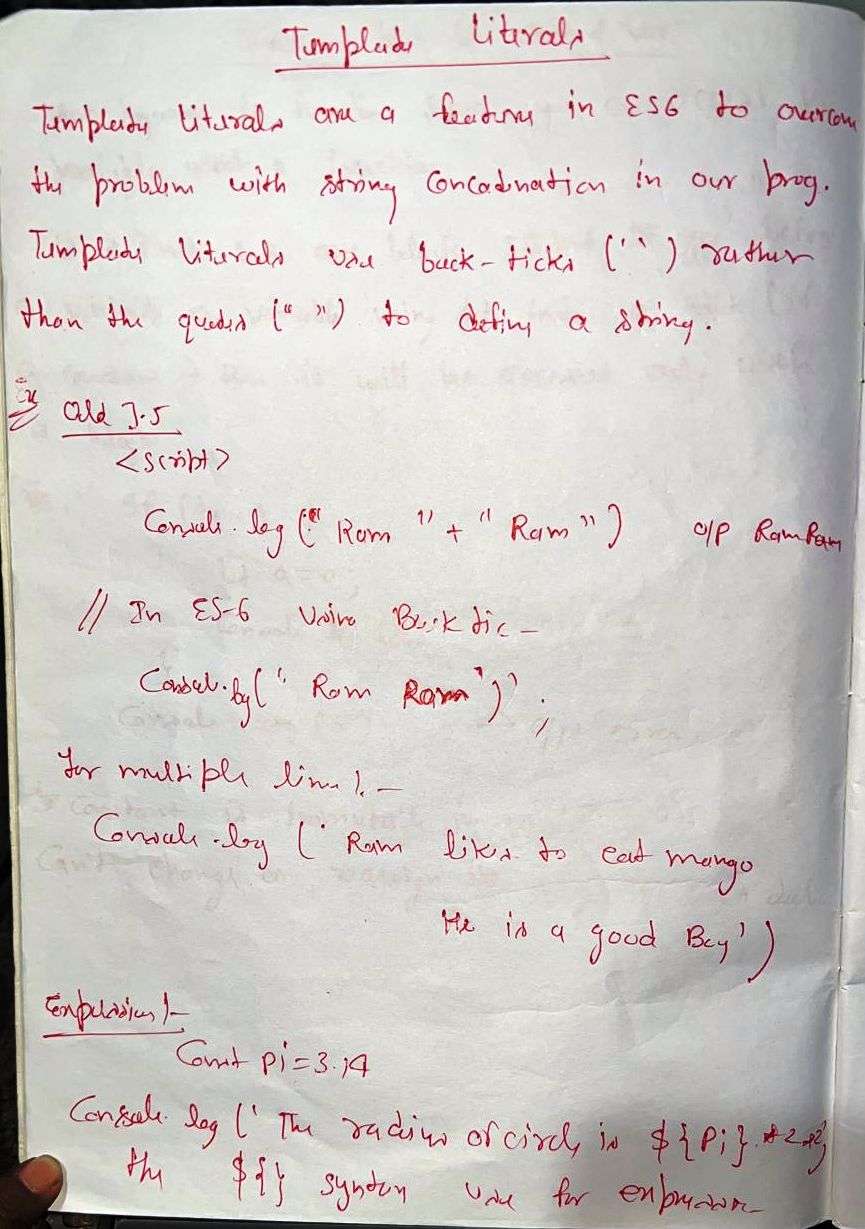 Template Literals
Template literals are a feature in ES6 to overcome
the problem with string concatenation in our prog.
Template literals use back-ticks (``) rather
than the quotes (" ") to define a string.
Ex Old J.S
<script>
Console.log ("Ram" + "Ram") O/P RamRam
// In ES-6 Using Back tic -
Console.log(` Ram Ram `)) ;
for multiple line :-
Console.log (` Ram likes to eat mango
He is a good Boy`)
Expression :-
Const Pi=3.14
Console.log (` The radius of circle is ${Pi} *2*2}
the ${} syntax use for expression